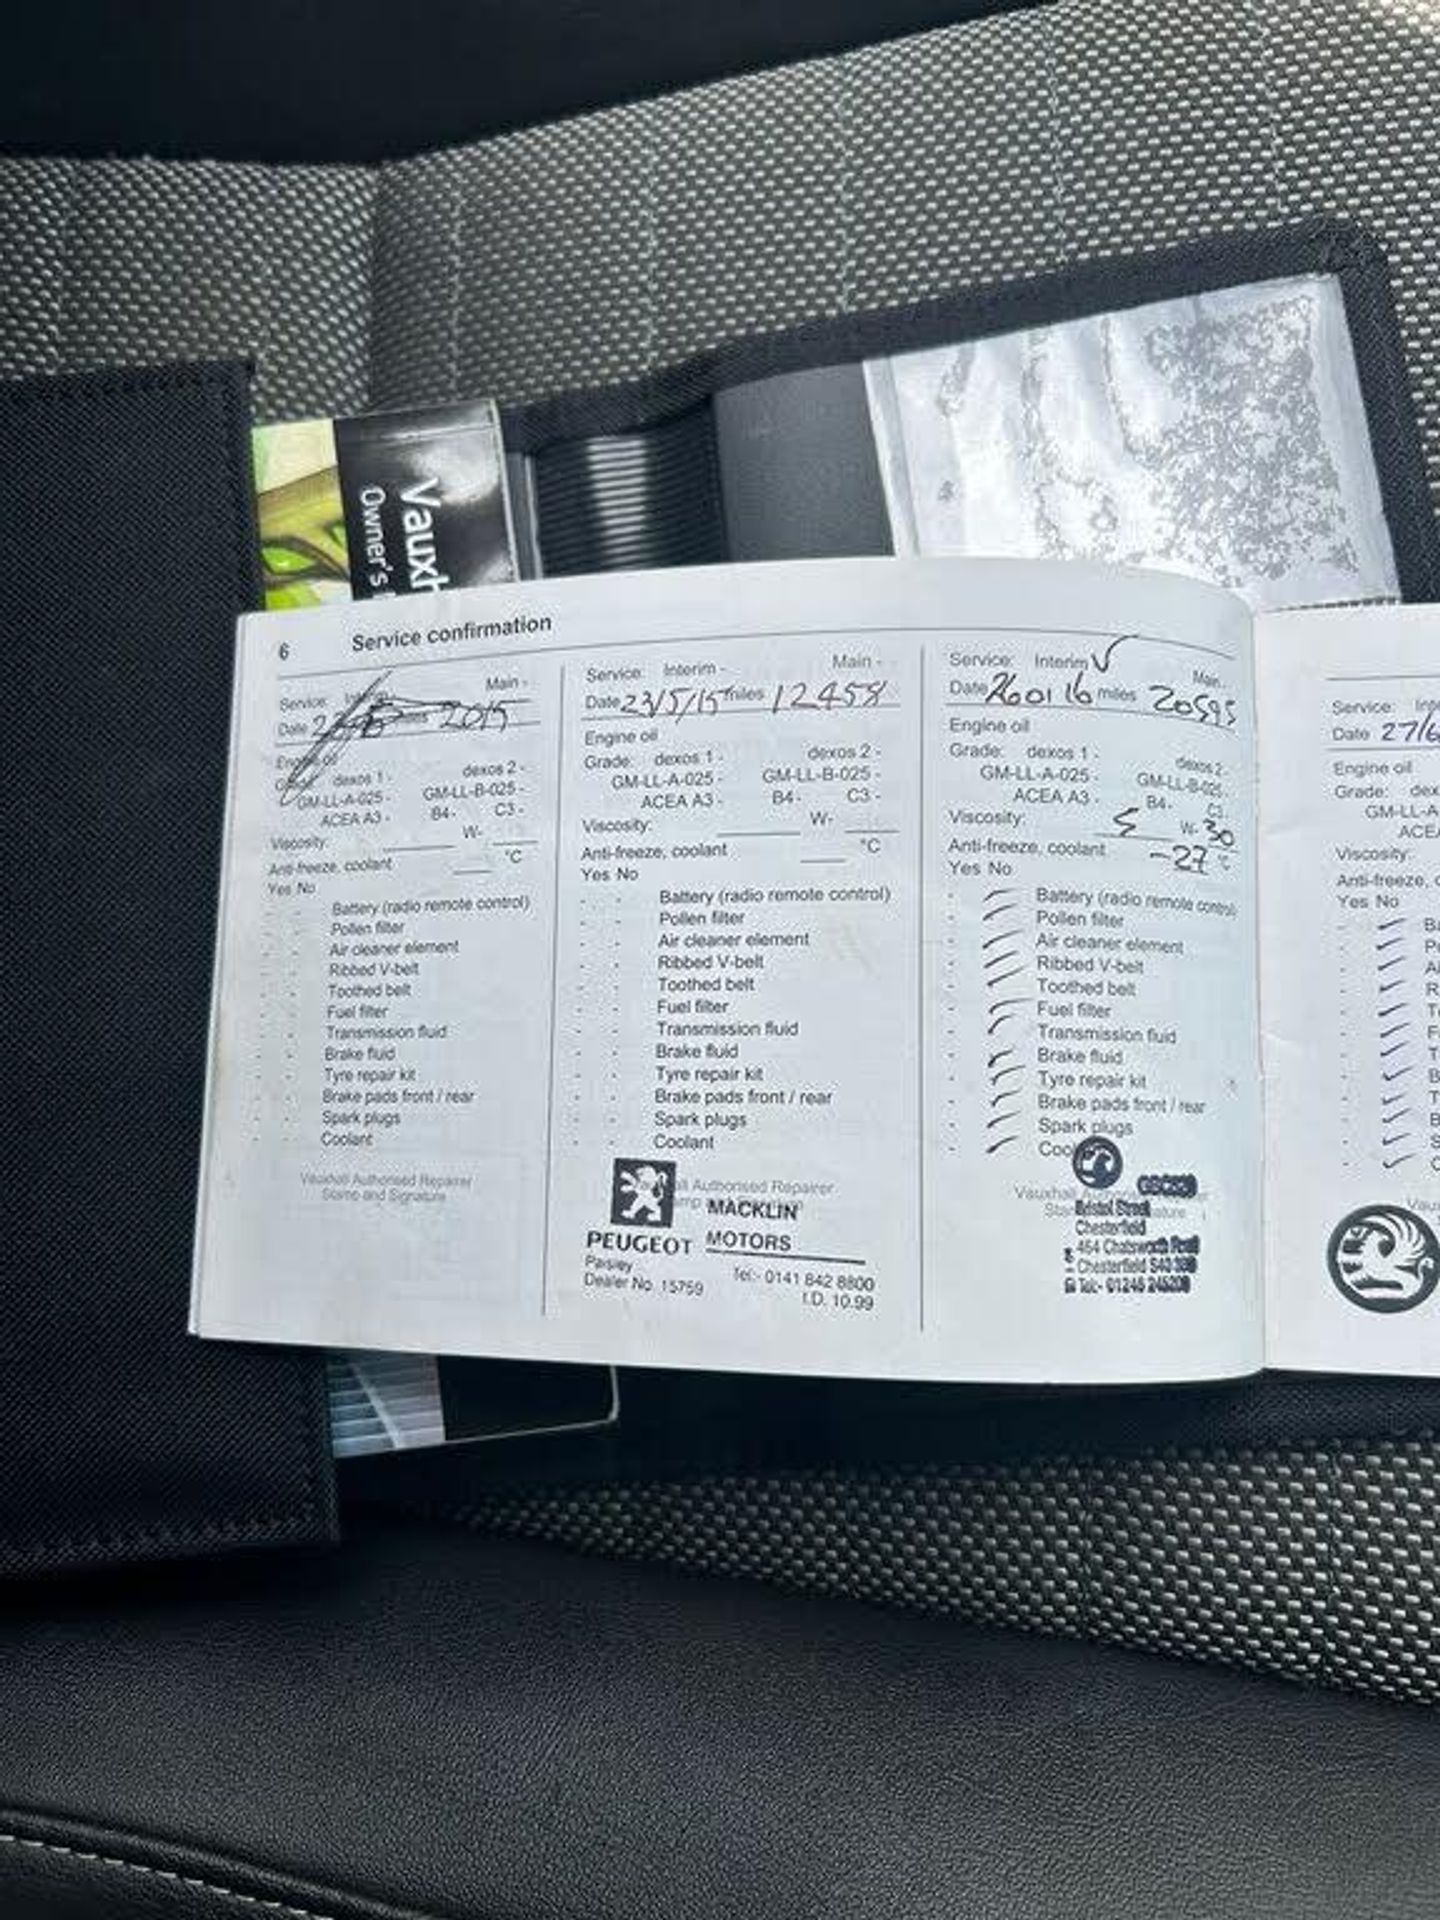 Vauxh
Owner's
6 Service confirmation
Service: Interim - Main -
Date 2 miles 2015
Engine oil
Grade: dexos 1 - dexos 2 -
GM-LL-A-025 - GM-LL-B-025 -
ACEA A3 - B4 - C3 -
Viscosity: W-
Anti-freeze, coolant °C
Yes No
- - Battery (radio remote control)
- - Pollen filter
- - Air cleaner element
- - Ribbed V-belt
- - Toothed belt
- - Fuel filter
- - Transmission fluid
- - Brake fluid
- - Tyre repair kit
- - Brake pads front / rear
- - Spark plugs
- - Coolant
Vauxhall Authorised Repairer
Stamp and Signature
Service: Interim - Main -
Date 23/5/15 miles 12458
Engine oil
Grade: dexos 1 - dexos 2 -
GM-LL-A-025 - GM-LL-B-025 -
ACEA A3 - B4 - C3 -
Viscosity: W-
Anti-freeze, coolant °C
Yes No
- - Battery (radio remote control)
- - Pollen filter
- - Air cleaner element
- - Ribbed V-belt
- - Toothed belt
- - Fuel filter
- - Transmission fluid
- - Brake fluid
- - Tyre repair kit
- - Brake pads front / rear
- - Spark plugs
- - Coolant
Authorised Repairer
MACKLIN
PEUGEOT MOTORS
Paisley Tel:- 0141 842 8800
Dealer No. 15759 I.D. 10.99
Service: Interim ✓ Main -
Date 260116 miles 20595
Engine oil
Grade: dexos 1 - dexos 2 -
GM-LL-A-025 - GM-LL-B-025 -
ACEA A3 - B4 - C3
Viscosity: 5 W- 30
Anti-freeze, coolant -27 °C
Yes No
- ✓ Battery (radio remote control)
- ✓ Pollen filter
- ✓ Air cleaner element
- ✓ Ribbed V-belt
- ✓ Toothed belt
- ✓ Fuel filter
Transmission fluid
- ✓ Brake fluid
- ✓ Tyre repair kit
- ✓ Brake pads front / rear
- ✓ Spark plugs
- ✓ Coo
Vauxhall
Bristol Street
Chesterfield
464 Chatsworth Road
Chesterfield S40 3
Tel:- 01246
Service: Inte
Date 27/6
Engine oil
Grade: dex
GM-LL-A
ACEA
Viscosity:
Anti-freeze, c
Yes No